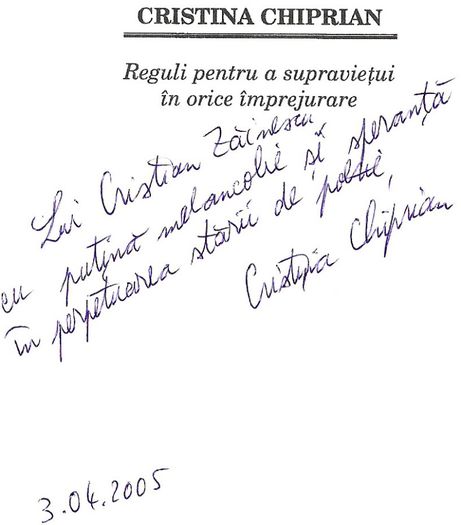 CRISTINA CHIPRIAN
Reguli pentru a supraviețui
în orice împrejurare
Lui Cristian Zăinescu
cu puțină melancolie și speranță
în perpetuarea stării de poezie,
Cristina Chiprian
3.04.2005